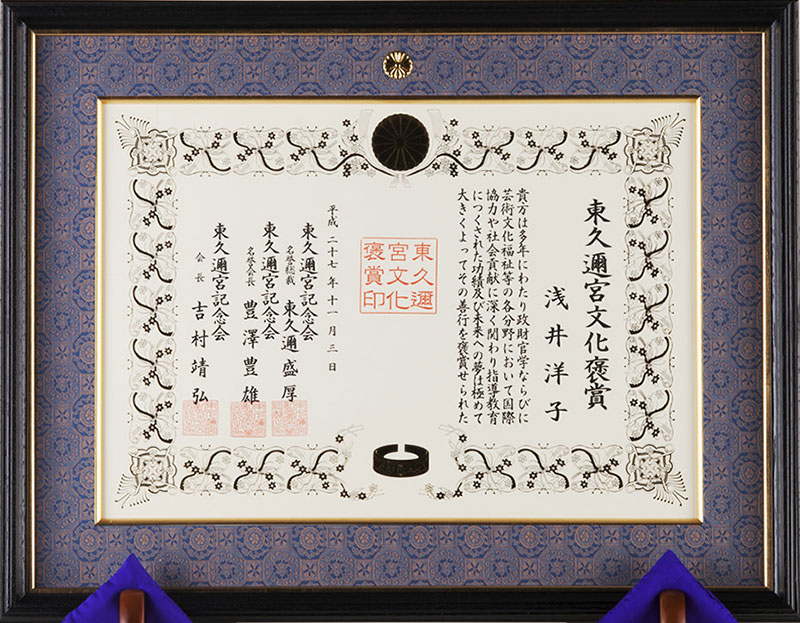 東久邇宮文化褒賞
浅井洋子
貴方は多年にわたり政財官学ならびに
芸術文化福祉等の各分野において国際
協力や社会貢献に深く関わり指導教育
につくされた功績及び未来への夢は極めて
大きくよってその善行を褒賞せられた
東久邇
宮文化
褒賞印
平成二十七年十一月三日
東久邇宮記念会
名誉総裁 東久邇盛厚
東久邇宮記念会
名誉会長 豊澤豊雄
東久邇宮記念会
会長 吉村靖弘